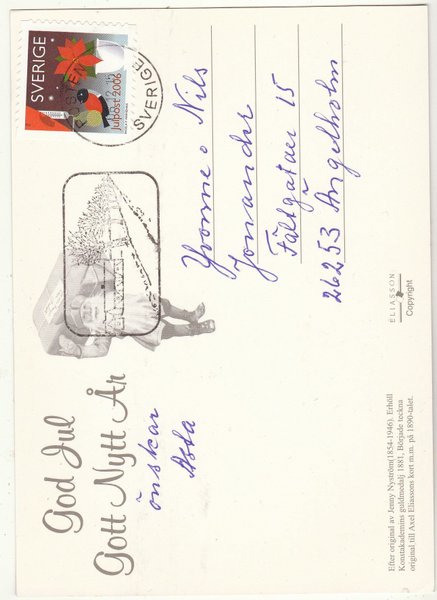 God Jul
Gott Nytt År
önskar
Asta
SVERIGE
Julpost 2006
POSTEN
SVERIGE
Yvonne o Nils
Jonander
Fältgatan 15
26253 Ängelholm
ELIASSON
Copyright
Efter original av Jenny Nyström(1854-1946). Erhöll
Konstakademins guldmedalj 1881, Började teckna
original till Axel Eliassons kort m.m. på 1890-talet.